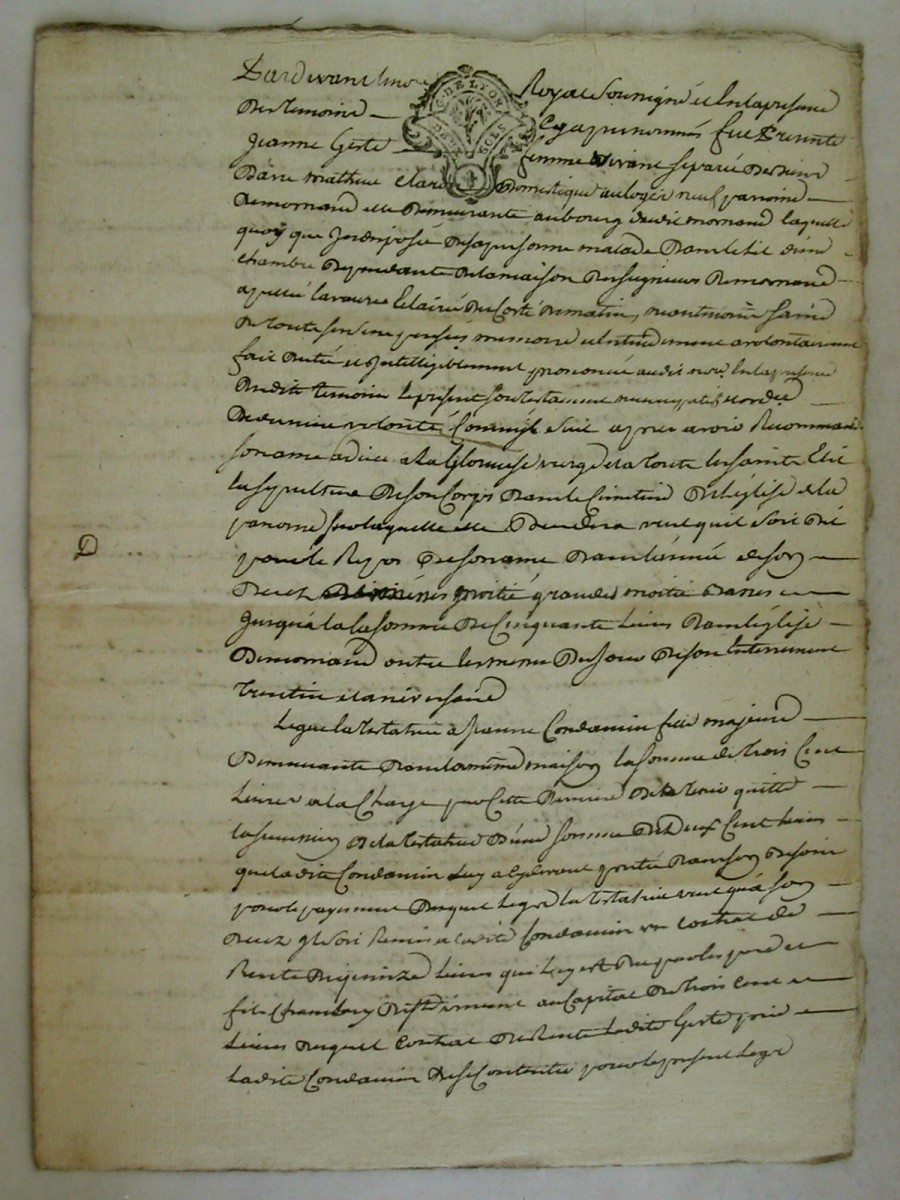 Pardevant no.re Royal Soussigné et En la presence
G. DE LYON
DEUX SOLS
Des temoins — Cy apres nommés fut Presente
Jeanne Geste femme vivant separée de sieur
mathieu claren Domestique au logis neuf paroisse —
de mornand elle Demeurante au bourg dudit mornand laquelle
quoy que Indisposée de sa personne malade Dans le lit d'une
chambre Dependante de la maison du seigneur De mornand —
apellé Eclairé Du Coté Du matin, neantmoins saine
De toutes ses sens pensées memoire et Entendement a volontairement
fait dicté et Intelligiblement prononcée audit no.re En la presence
Desdits temoins le present son testament nuncupatif et ordre
De derniere volonté, Comme s'suit apres avoir Recommandé
son ame a dieu a la Glorieuse vierge et a toute les saints Elit
la sepulture De son Corps Dans le Cimetiere De l'église de la
paroisse sur laquelle elle Decedera veut qu'il soit Dit
pour le Repos De son ame Dans l'année de son —
Decez moitié grandes moitié basses —
Jusqu'a la somme De Cinquante livres Dans l'église —
De mornand outre les messes Du jour De son Enterrement
trentin et aniversaire
Legue la testatrice a Jeanne Condamin fille majeure —
Demeurante Dans la meme maison la somme de trois Cent
livres a la Charge par Cette Derniere De tenir quitte —
la succession De la testatrice D'une somme De Deux Cent livres
que ladite Condamin luy a cydevant pretée Dans son Besoin
pour le payement Duquel legs la testatrice veut qu'a son —
Decez il soit Remis a ladite Condamin un contrat de —
Rente De quinze livres qui luy est Due par les pere et —
fils Chambry De au Capital De trois Cent —
livres Duquel Contrat De Rente ladite Geste prie —
ladite Condamin De se Contenter pour le present legs
D